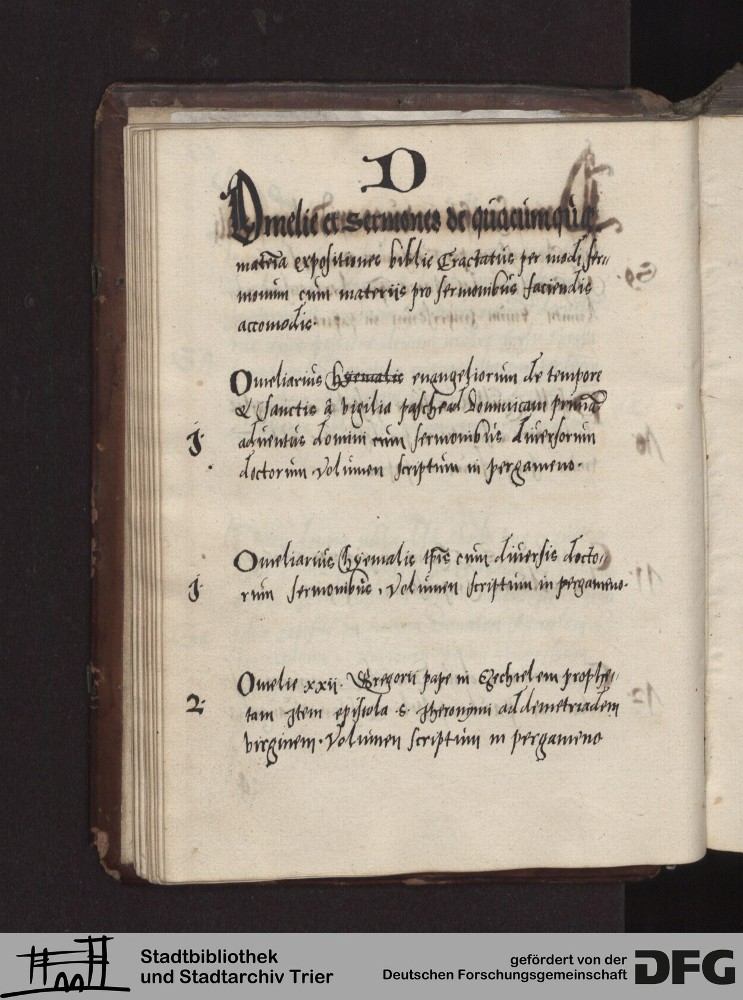 O
Omelie et Sermones de quacumque
materia expositiones biblie Tractatus per modū ser-
monum cum materiis pro sermonibus faciendis
accomodis.
Omeliarius hyemalis euangeliorum de tempore
& sanctis a vigilia pasche ad Dominicam primā
1. aduentus domini cum sermonibus diuersorum
doctorum. Volumen scriptum in pergameno.
Omeliarius hyemalis tp̄is cum diuersis docto-
1 rum sermonibus. Volumen scriptum in pergameno.
Omelie xxii. Gregorii pape in Ezechielem prophe-
2. tam Item epistola .s. Iheronimi ad demetriadem
virginem. Volumen scriptum in pergameno
Stadtbibliothek
und Stadtarchiv Trier
gefördert von der
Deutschen Forschungsgemeinschaft
DFG